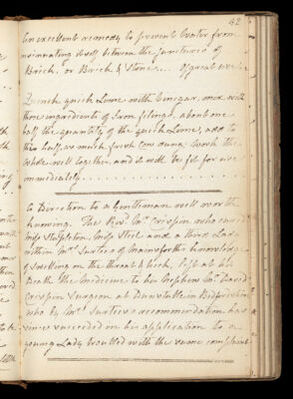 42
An excellent remedy to prevent Water from
insinuating itself between the junctures of
Brick, or Brick & Stone... Of great use
Quench quick Lime with Vinegar, mix with
these ingredients of Iron filings, about one
half the quantity of the quick Lime, add to
this half, as much fresh Cow dung, work the
whole well together, and it will be fit for use
immediately
A Direction to a Gentleman well worth
knowing. The Revd. Mr. Crispin who cured
Miss Stapleton, Miss Steel and a third Lady
within Mr. Surtees of Mainsforths knowledge
of Swelling on the throat & Neck, left at his
Death the Medicine to his Nephew Mr. David
Crispin Surgeon at Dunstable in Bedfordshire
who by Mr. Surtees recommendation has
since succeeded in his application to a
young Lady troubled with the same complaint